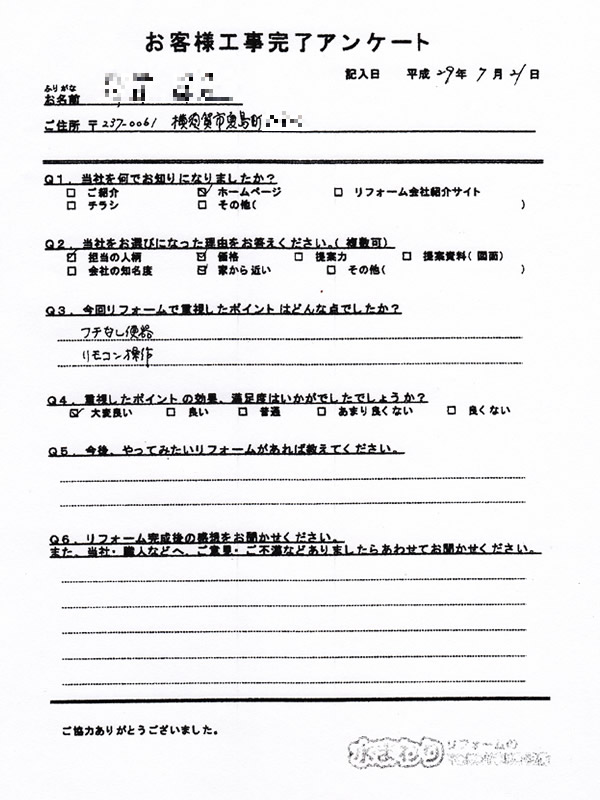 お客様工事完了アンケート
記入日 平成 29年 7月 21日
ふりがな
お名前
ご住所 〒237-0061 横須賀市夏島町
Q1. 当社を何でお知りになりましたか?
□ ご紹介 ☑ ホームページ □ リフォーム会社紹介サイト
□ チラシ □ その他( )
Q2. 当社をお選びになった理由をお答えください。( 複数可)
☑ 担当の人柄 ☑ 価格 □ 提案力 □ 提案資料( 図面)
□ 会社の知名度 ☑ 家から近い □ その他( )
Q3. 今回リフォームで重視したポイントはどんな点でしたか?
フチなし便器
リモコン操作
Q4. 重視したポイントの効果、満足度はいかがでしたでしょうか?
☑ 大変良い □ 良い □ 普通 □ あまり良くない □ 良くない
Q5. 今後、やってみたいリフォームがあれば教えてください。
Q6. リフォーム完成後の感想をお聞かせください。
また、当社・職人などへ、ご意見・ご不満などありましたらあわせてお聞かせください。
ご協力ありがとうございました。
水まわり リフォームの